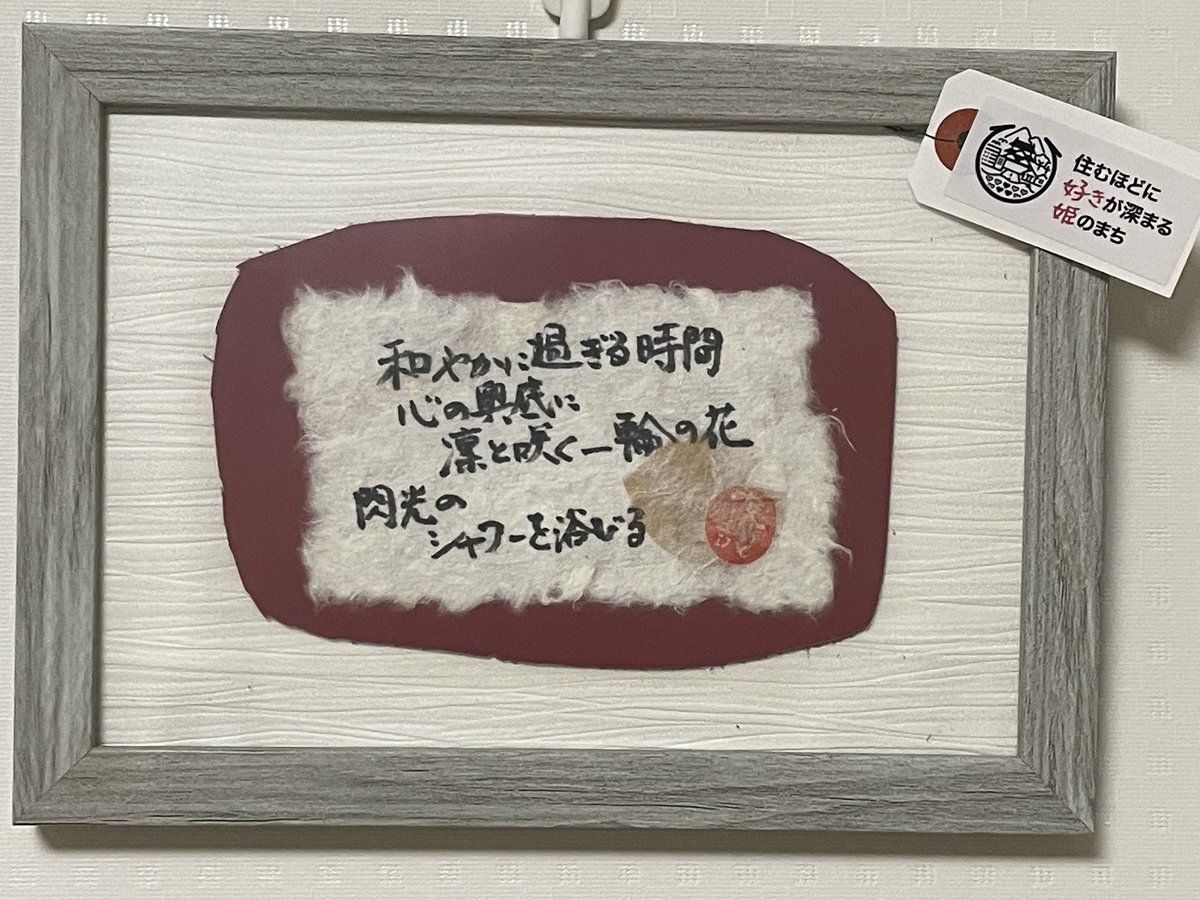 和やかに過ぎる時間
心の奥底に
凛と咲く一輪の花
閃光の
シャワーを浴びる
住むほどに
好きが深まる
姫のまち